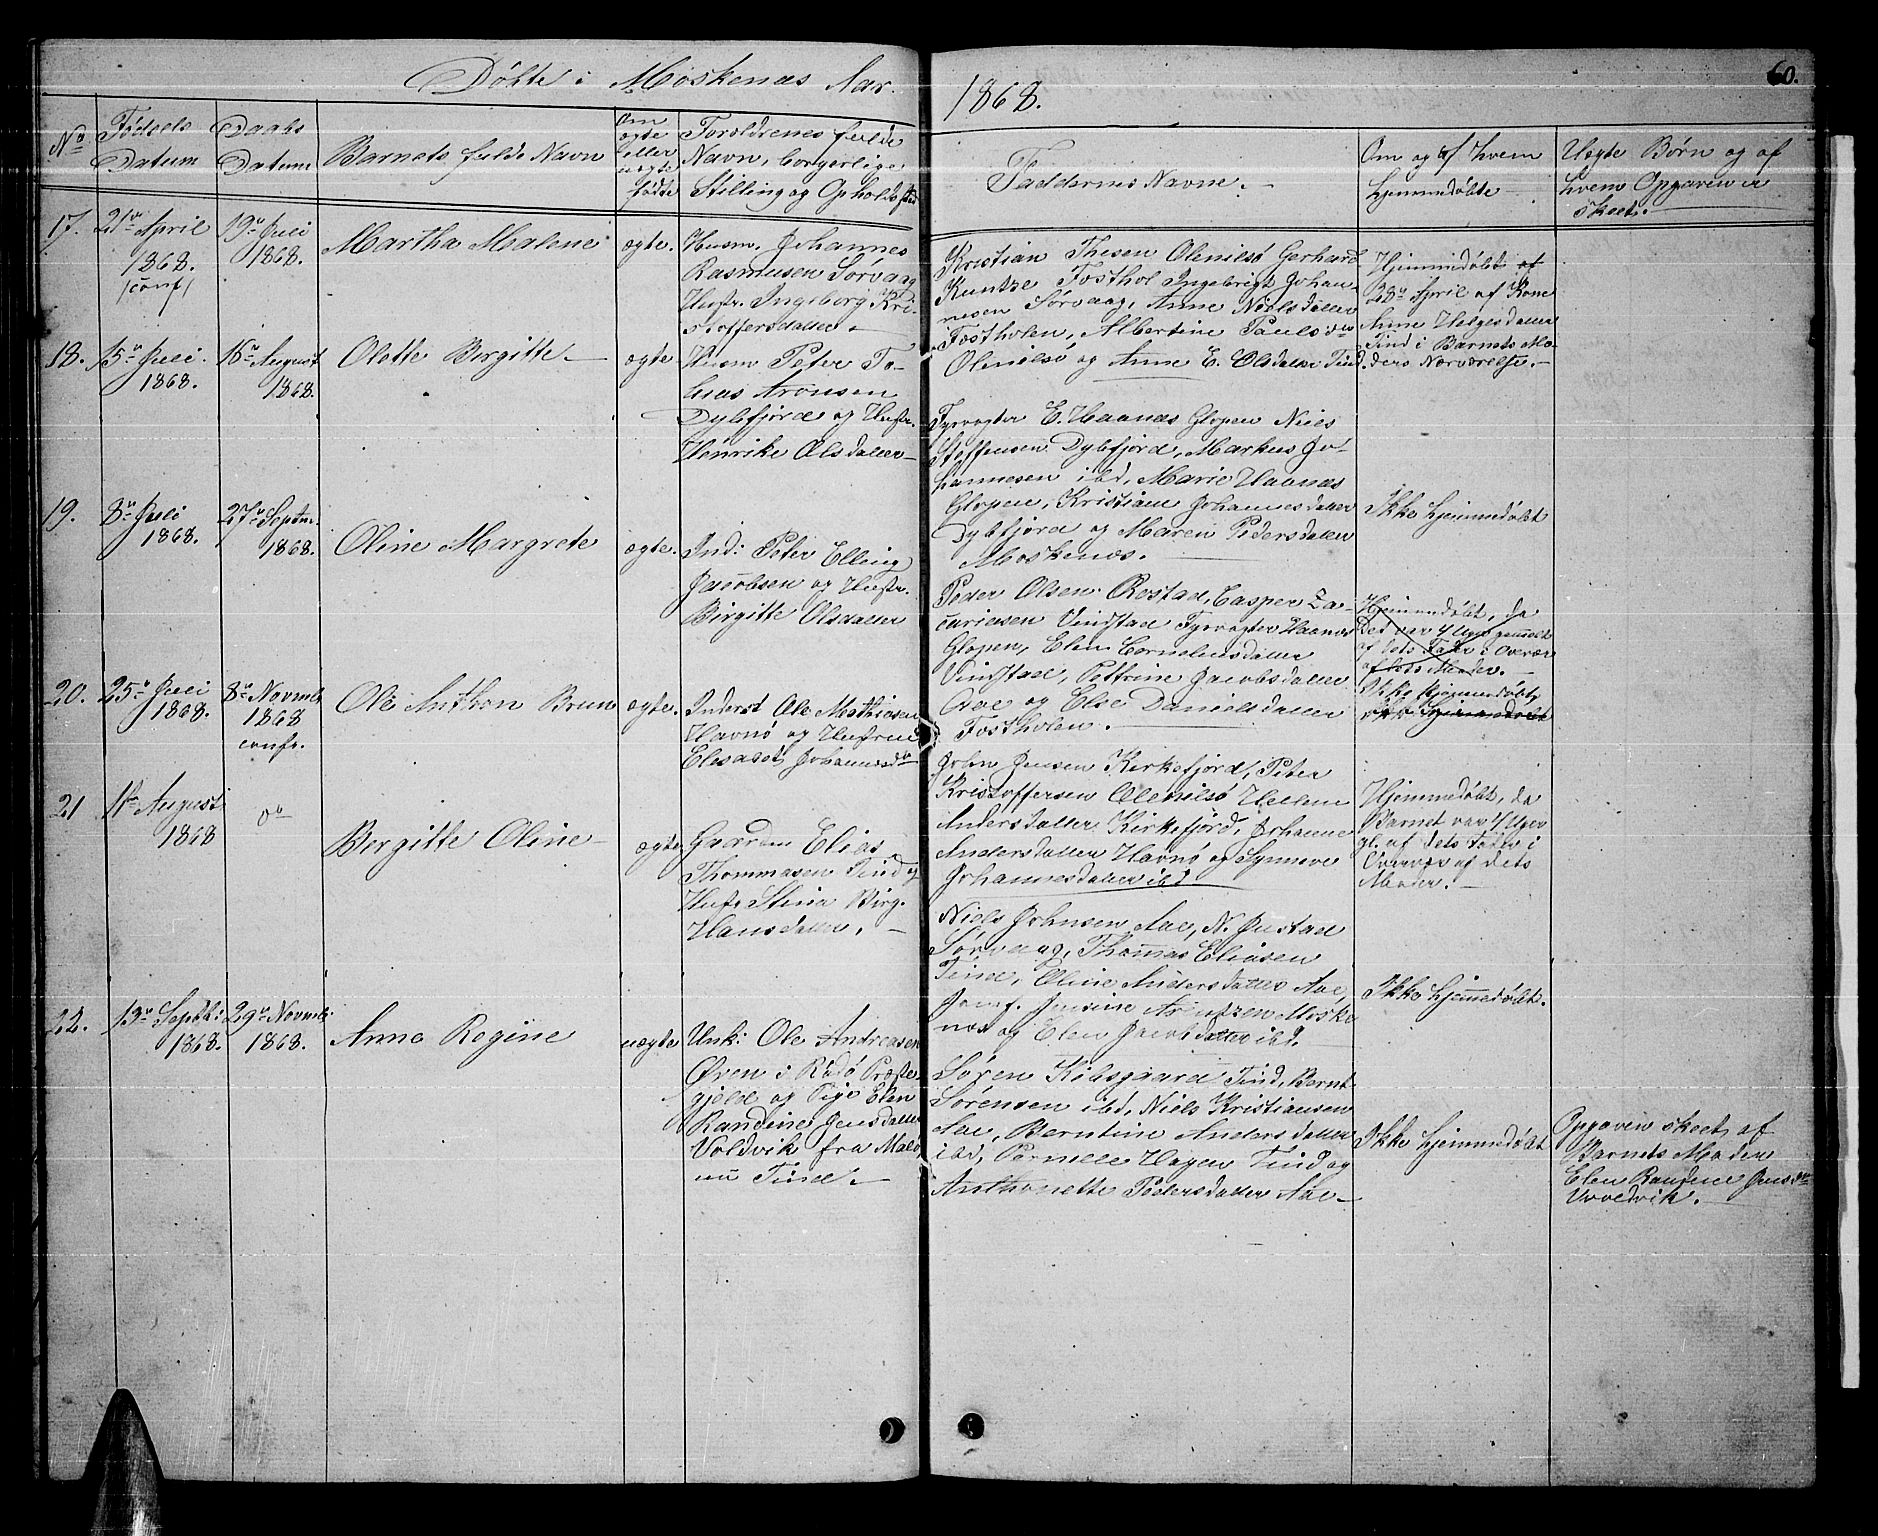 Døbte i Moskenæs Aar
1868.
60.
No
Fødsels
Datum
Daabs
Datum
Barnets fulde Navn
Om
ægte
eller
uægte
fødte
Forældrenes fulde
Navn, borgerlige
Stilling og Opholdssted
Faddernes Navne.
Om og af hvem
hjemmedøbte
Uægte Børn og af
hvem Opgaven er
skeet.
17.
21de April
1868.
/conf/
19de Juli
1868.
Martha Malene
ægte.
Husm. Johannes
Rasmusen Sørvaag
Hustr. Ingeborg Kri-
stoffersdatter
Kristian Thesen Olenilsø Gerhard
Kuntze Fosthol Ingebrigt Johan-
nesen Sørvaag, Anne Nielsdatter
Fostholen, Albertine Paulsdr
Olenilsø og Anne E. Olsdatter Tind.
Hjemmedøbt af
28de April af Kone
Anne Helgesdatter
Tind i Barnets Mo-
ders Nærværelse.
18.
15de Juli
1868.
16de August
1868.
Olette Birgitte
ægte
Husm Peter To-
bias Aronsen
Dybfjord og Hustr.
Henrike Olsdatter
Fyrvogter E. Haanæs Glopen Niels
Steffensen Dybfjord, Markus Jo-
hannesen ibd, Marie Haanæs
Glopen, Kristiane Johannesdatter
Dybfjord og Maren Pedersdatter
Moskenæs.
Ikke hjemmedøbt
19.
8de Juli
1868.
27de Septm.
1868.
Oline Margrete
ægte.
Ind: Peter Elling
Jacobsen og Hustr.
Birgitte Olsdatter
Peder Olsen Restad, Casper Za-
cariasen Vindstad Fyrvogter Haanæs
Glopen, Elen Corneliusdatter
Vindstad, Pettrine Jacobsdatter
Aae og Else Danielsdatter
Fostholen.
Hjemmedøbt, da
Det var 4 Uger gammelt
af dets Fader i Overvær
af dets Moder.
Ikke hjemmedøbt
Ikke hjemmedøbt
20.
25de Juli
1868.
8de Novmb
1868
confr.
Ole Anthon Brun
ægte.
Inderst Ole Mathiasen
Havnø og Hustrue
Elisabet Johannesdr
John Jensen Kirkefjord, Peter
Kristoffersen Olenilsø Hellene
Andersdatter Kirkefjord, Johanne
Andersdatter Havnø og Synneve
Johannesdatter ibd
Hjemmedøbt, da
Barnet var 4 Uger
gl. af dets Fader i
Overvær af dets
Moder.
21
11te August
1868
do
Bergitte Oline
ægte
Gaardm Elias
Thommasen Tind og
Hustr Stina Birg.
Hansdatter.
Niels Johnsen Aae, N. Justad
Sørvaag, Thomas Eliasen
Tind, Oline Andersdatter Aae,
Jomf. Jensine Arentzen Moske-
næs og Elen Jacobsdatter ibd.
Ikke hjemmedøbt.
22.
13de Septbr:
1868.
29de Novmb
1868.
Anne Regine
uægte
Unk: Ole Andreasen
Øren i Rødø Præste-
gjeld og Pige Elen
Randine Jensdatter
Voldvik fra Malø
nu Tind.
Søren Kobsgaard Tind, Bernt
Sørensen ibd, Niels Kristiansen
Aae, Berntine Andersdatter
ibd, Pernelle Hagen Tind og
Anthonette Pedersdatter Aae
Ikke hjemmedøbt
Opgaven skeet af
Barnets Moder
Elen Randine Jensdr
Voldvik.